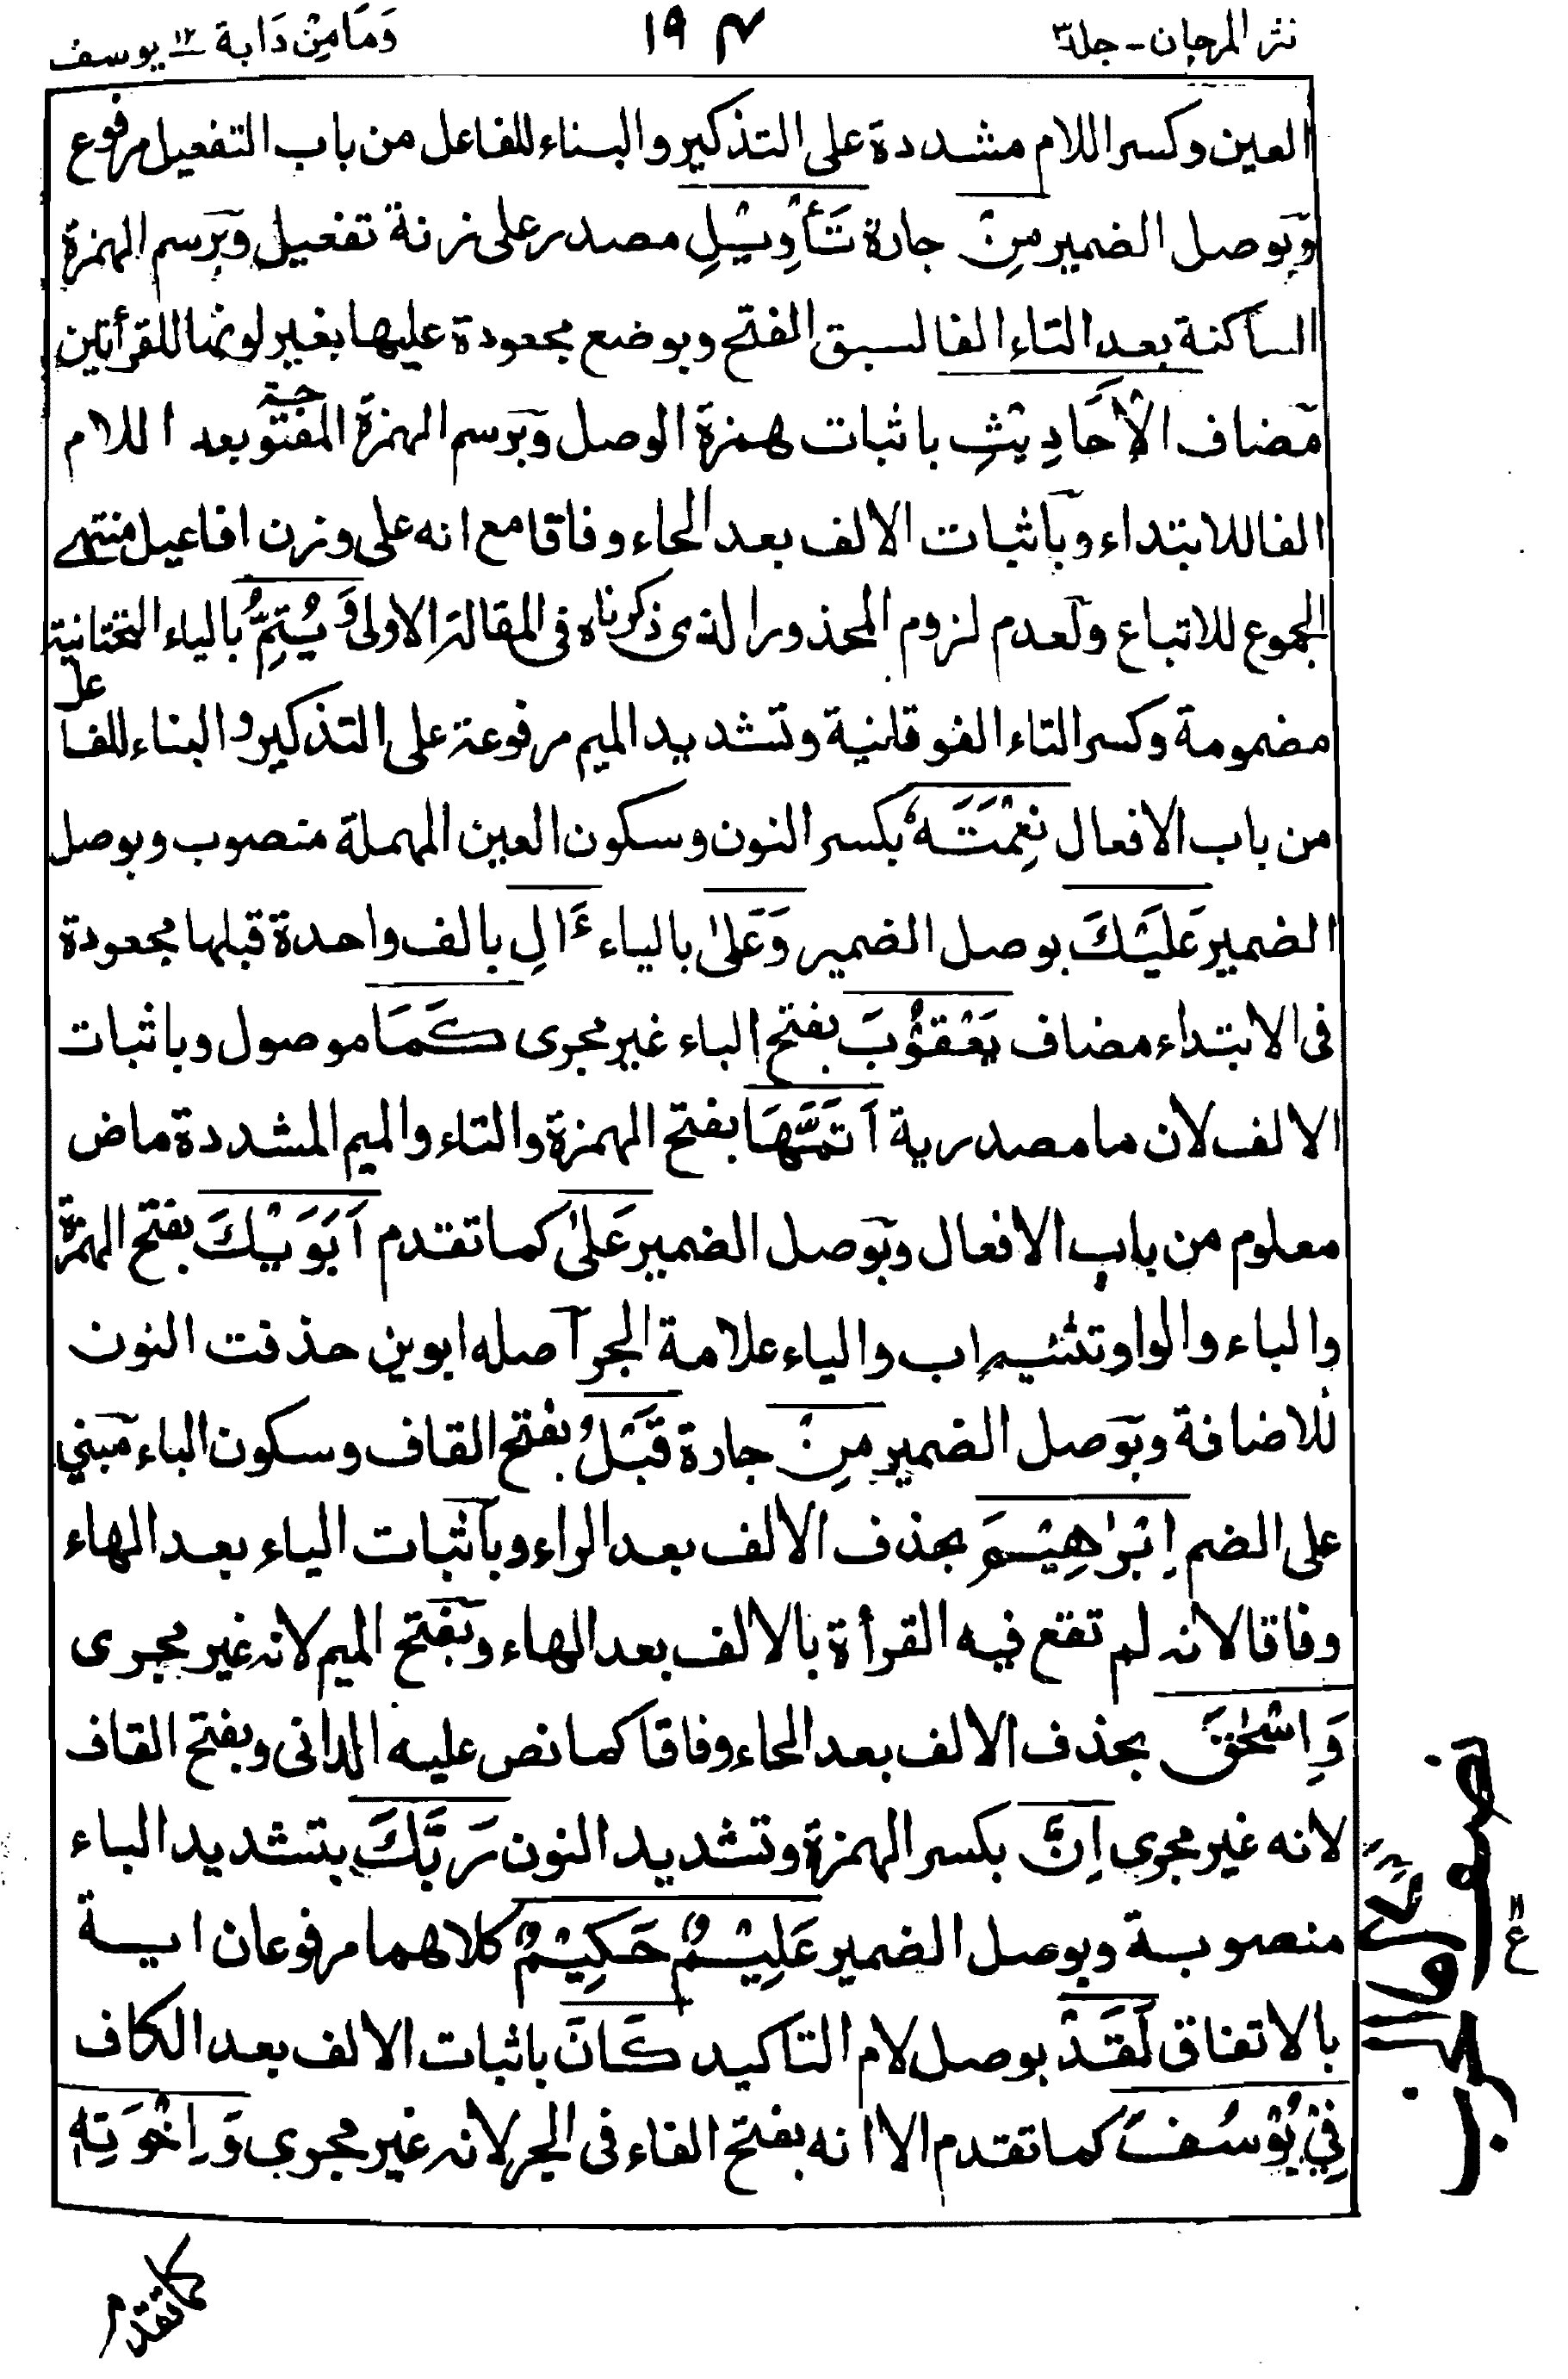 نثر المرجان - جلد ٣ ١٩٤ وَمَا مِنْ دَابة ١٢ يوسف
العين وكسر اللام مشددة على التذكير والبناء للفاعل من باب التفعيل مرفوع
وبوصل الضمير مِنْ جارة تَأْوِيْلِ مصدر على زنة تفعيل وبرسم الهمزة
الساكنة بعد التاء الفا لسبق الفتح وبوضع مجعودة عليها بغير لونها للقرأتين
مضاف الْأَحَادِيْثِ باثبات همزة الوصل وبرسم الهمزة المفتوحة بعد اللام
الفا للابتداء وباثبات الالف بعد الحاء وفاقا مع انه على وزن افاعيل منتهى
الجموع للاتباع ولعدم لزوم المحذور الذى ذكرناه فى المقالة الاولى وَيُتِمُّ بالياء التحتانية
مضمومة وكسر التاء الفوقانية وتشديد الميم مرفوعة على التذكير والبناء للفاعل
من باب الافعال نِعْمَتَهٗ بكسر النون وسكون العين المهملة منصوب وبوصل
الضمير عَلَيْكَ بوصل الضمير وَعَلىٰ بالياء ءَالِ بالف واحدة قبلها مجعودة
فى الابتداء مضاف يَعْقُوْبَ بفتح الباء غير مجرى كَمَا موصول وباثبات
الالف لان ما مصدرية اَتَمَّهَا بفتح الهمزة والتاء والميم المشددة ماض
معلوم من باب الافعال وبوصل الضمير عَلىٰ كما تقدم اَبَوَيْكَ بفتح الهمزة
والباء والواو تثنية اب والياء علامة الجر اصله ابوين حذفت النون
للاضافة وبوصل الضمير مِنْ جارة قَبْلُ بفتح القاف وسكون الباء مبني
على الضم اِبْرٰهِيْمَ بحذف الالف بعد الراء وباثبات الياء بعد الهاء
وفاقا لانه لم تقع فيه القرأة بالالف بعد الهاء وبفتح الميم لانه غير مجرى
وَاِسْحٰقَ بحذف الالف بعد الحاء وفاقا كما نص عليه الدانى وبفتح القاف
لانه غير مجرى اِنَّ بكسر الهمزة وتشديد النون رَبَّكَ بتشديد الباء
منصوبة وبوصل الضمير عَلِيْمٌ حَكِيْمٌ كلاهما مرفوعان اية
بالاتفاق لَقَدْ بوصل لام التاكيد كَانَ باثبات الالف بعد الكاف
فِيْ يُوْسُفَ كما تقدم الا انه بفتح الفاء فى الجر لانه غير مجرى وَاِخْوَتِهٖ
كما تقدم
ع